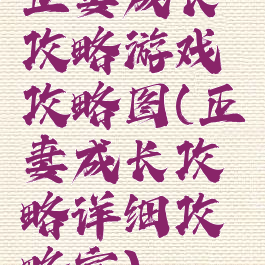 正妻成长
攻略游戏
攻略图(正
妻成长攻
略详细攻
略宫)